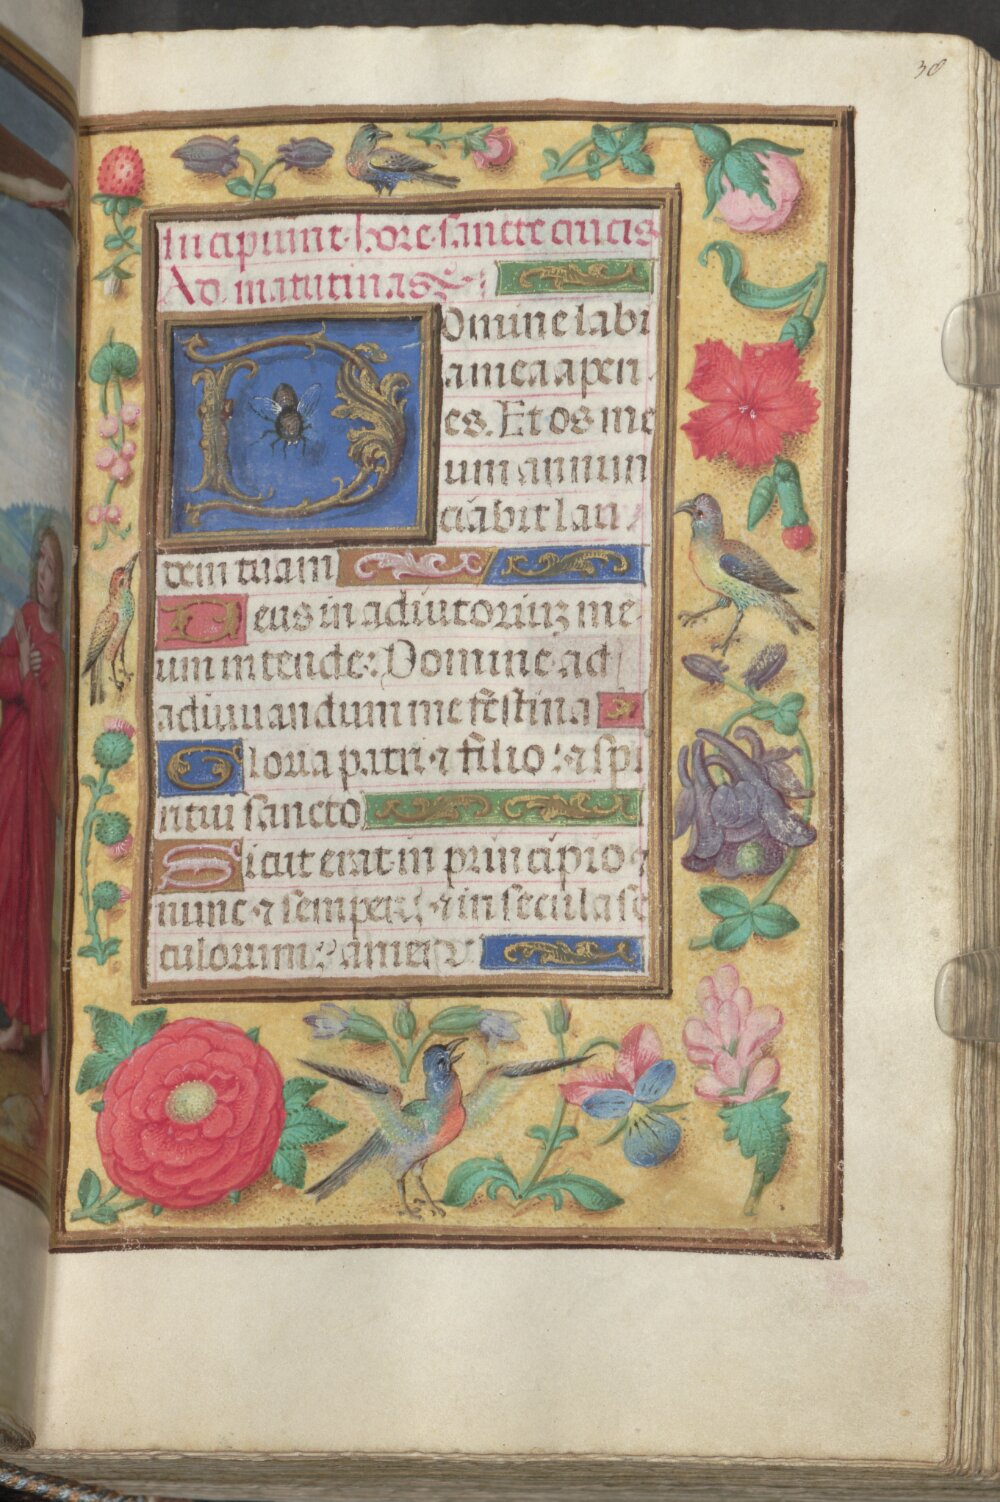 38
Incipiunt hore sancte crucis
Ad matutinas
Domine labi
a mea aperi
es. Et os me
um annun
ciabit lau
dem tuam
Deus in adiutoriuz me
um intende: Domine ad
adiuuandum me festina
Gloria patri ⁊ filio: ⁊ spi
ritui sancto
Sicut erat in principio ⁊
nunc ⁊ semper: ⁊ in secula se
culorum: amen